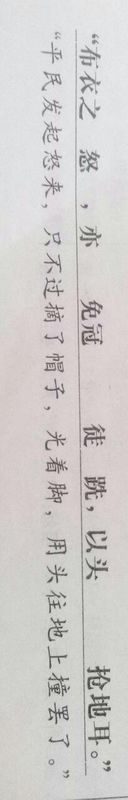 “布衣之怒，亦免冠徒跣，以头抢地耳。”
“平民发起怒来，只不过摘了帽子，光着脚，用头往地上撞罢了。”